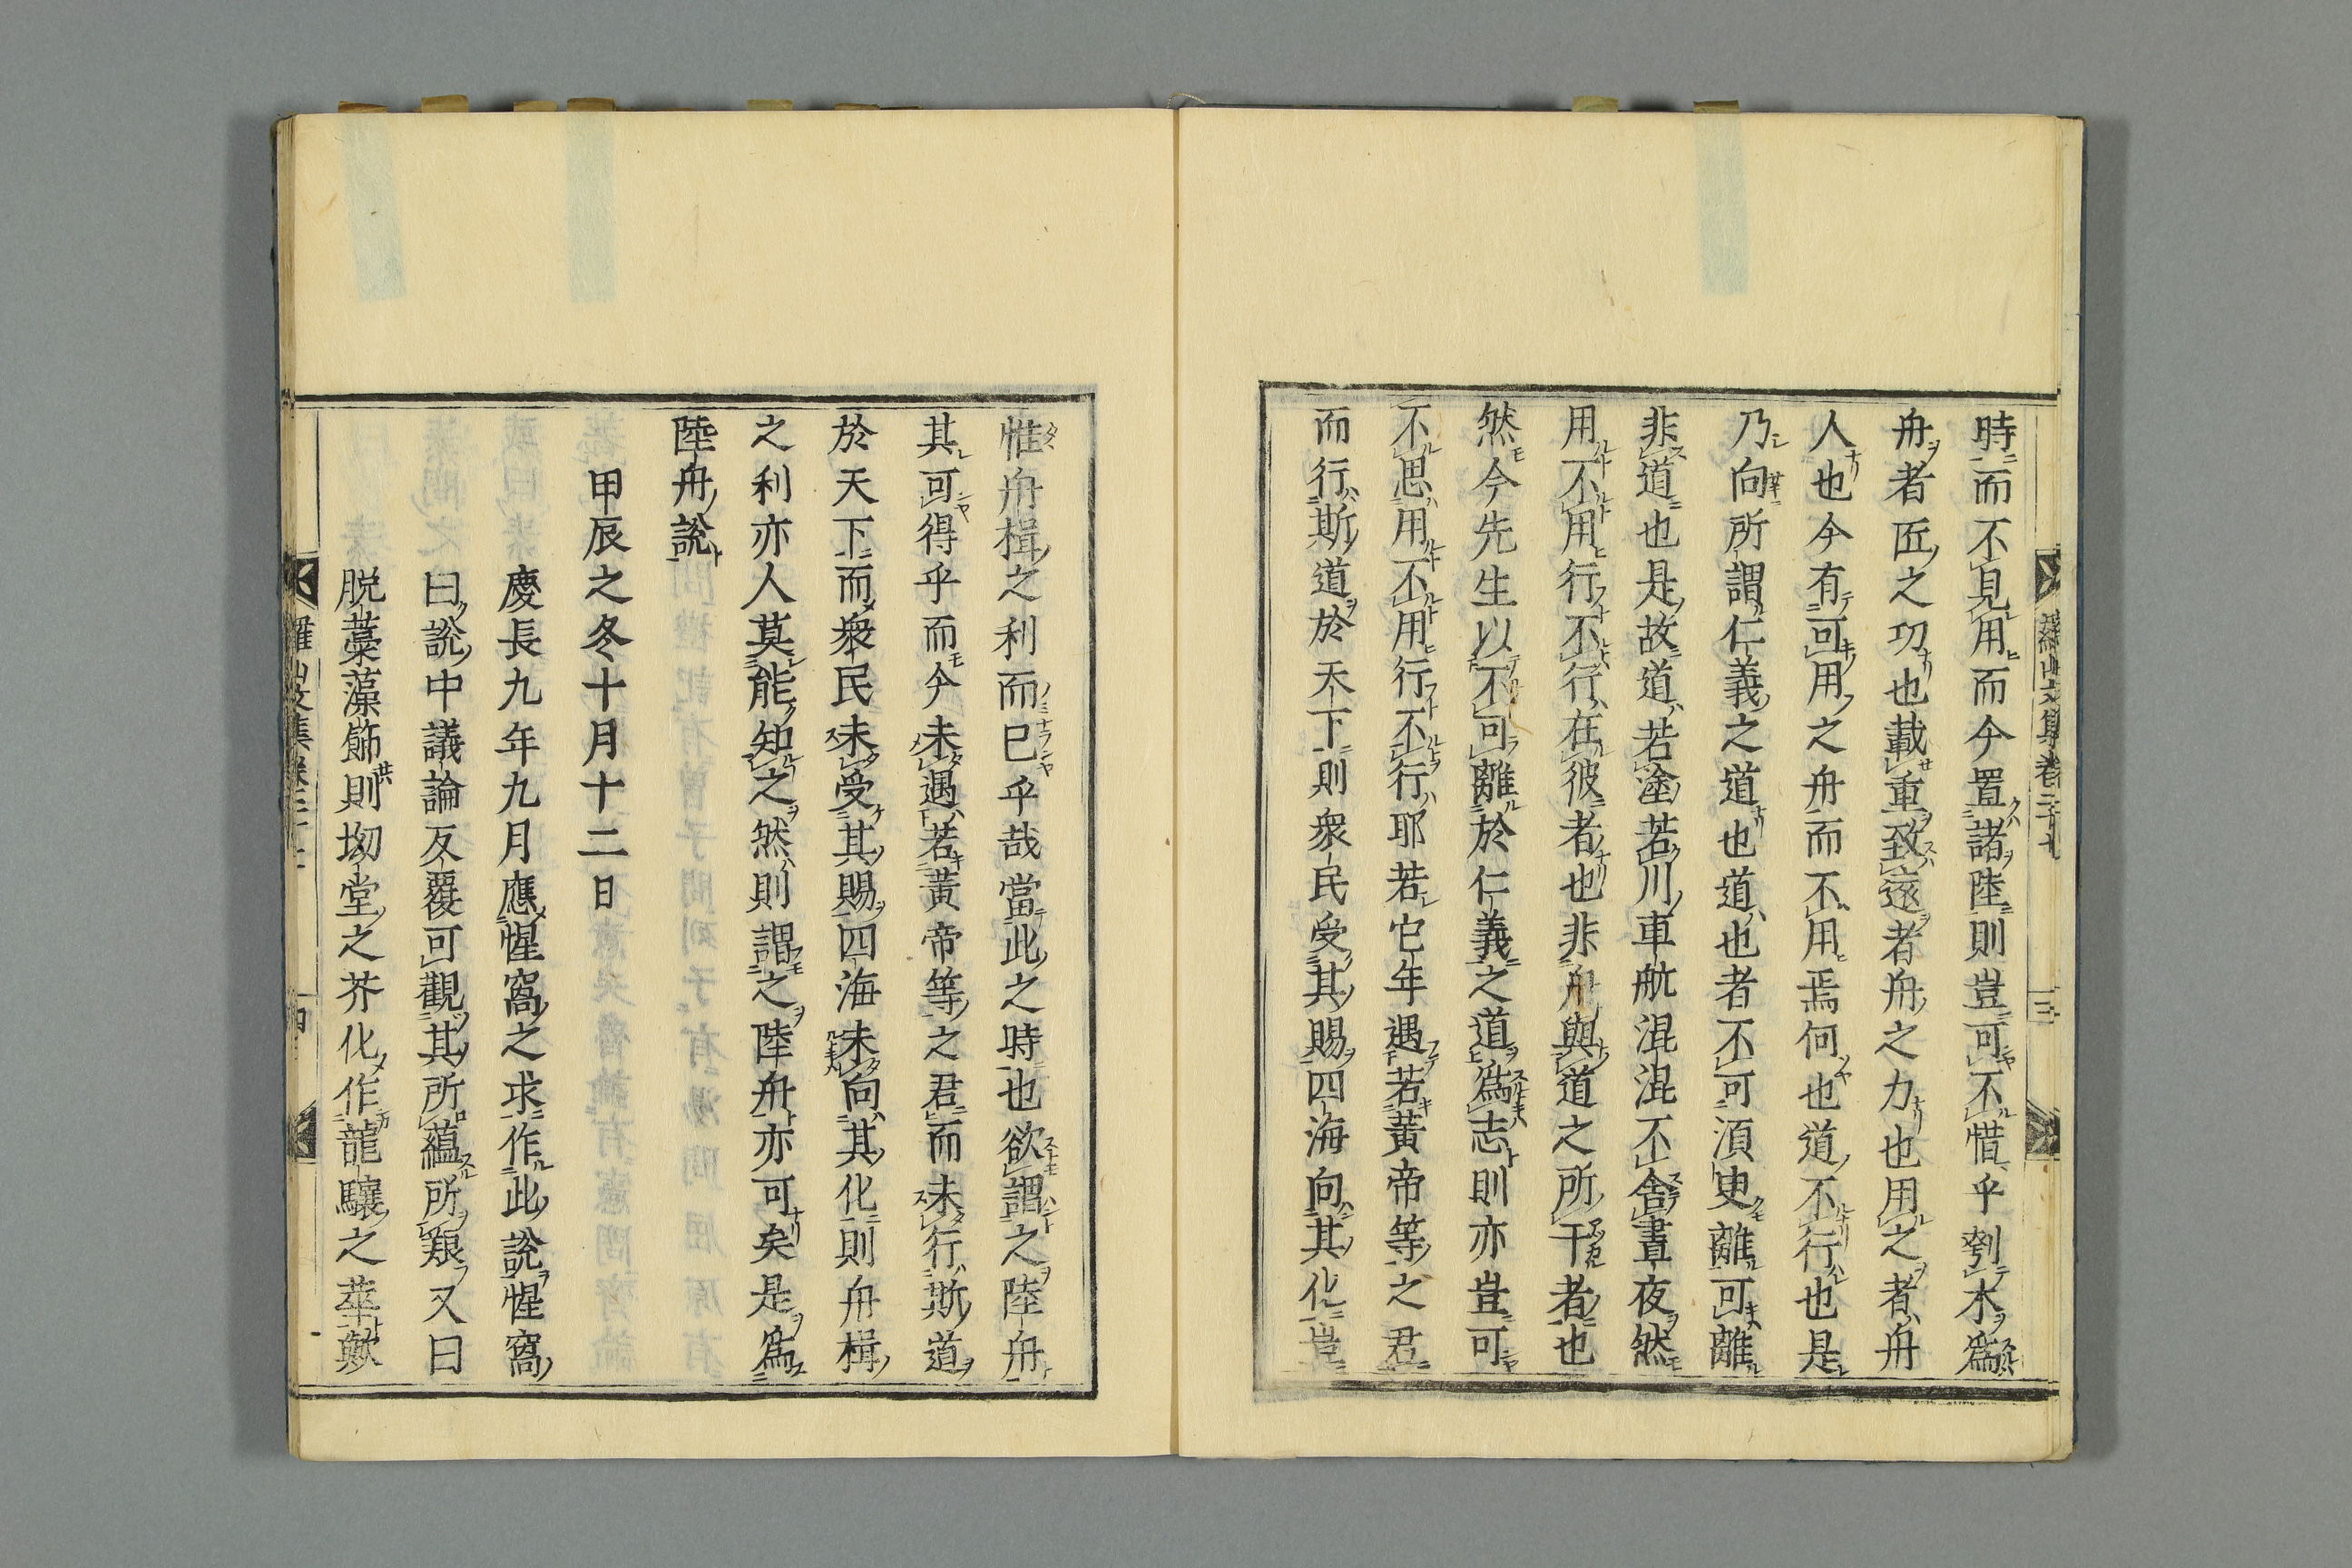 時而不見用而今置諸陸則豈可不惜乎刳木爲
舟者匠之功也載重致遠者舟之力也用之者舟
人也今有可用之舟而不用焉何也道不行也是
乃向所謂仁義之道也道也者不可須臾離可離
非道也是故道若塗若川車航混混不舍晝夜然
用不用行不行在彼者也非舟與道之所干者也
然今先生以不可離於仁義之道爲志則亦豈可
不思用不用行不行耶若它年遇若黃帝等之君
而行斯道於天下則衆民受其賜四海向其化豈
惟舟楫之利而已乎哉當此之時也欲謂之陸舟
其可得乎而今未遇若黃帝等之君而未行斯道
於天下而衆民未受其賜四海未向其化則舟楫
之利亦人莫能知之然則謂之陸舟亦可矣是爲
陸舟說
甲辰之冬十月十二日
慶長九年九月應惺窩之求作此說惺窩
曰說中議論反覆可觀其所蘊所艱又曰
脱藁藻飾則坳堂之芥化作龍驤之葦歟
羅山文集卷二十七
三